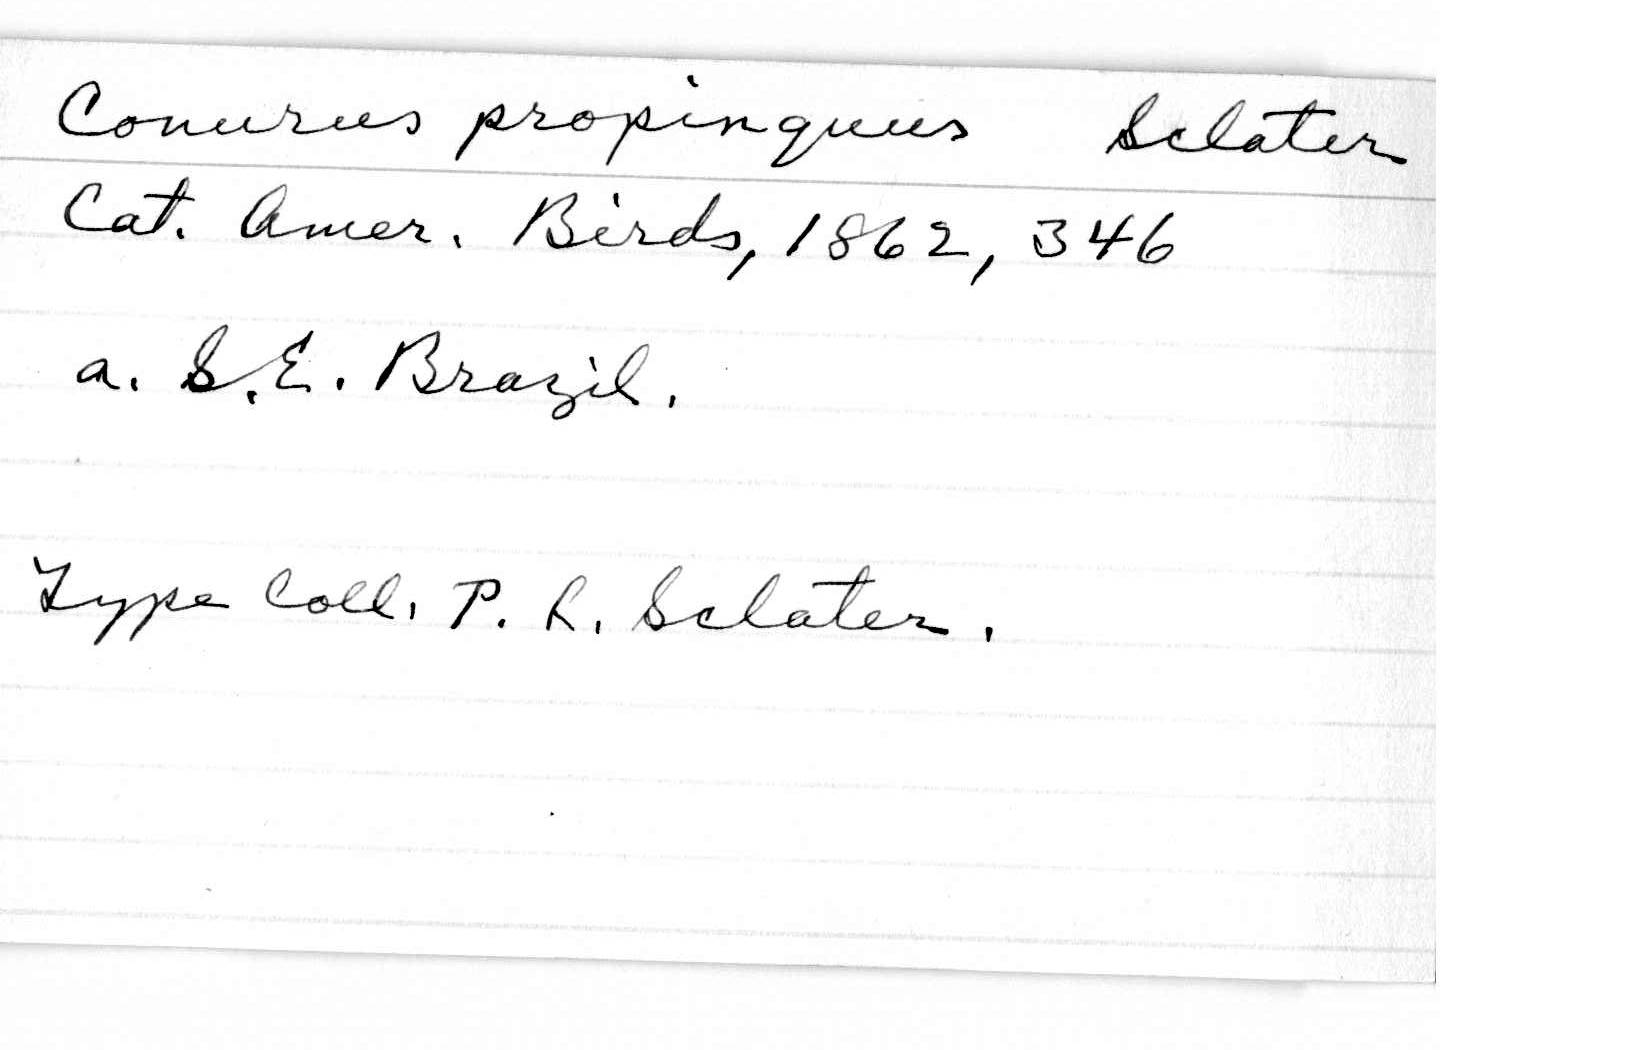 Conurus propinquus Sclater
Cat. Amer. Birds, 1862, 346
a. S.E. Brazil.
Type Coll. P. L. Sclater.